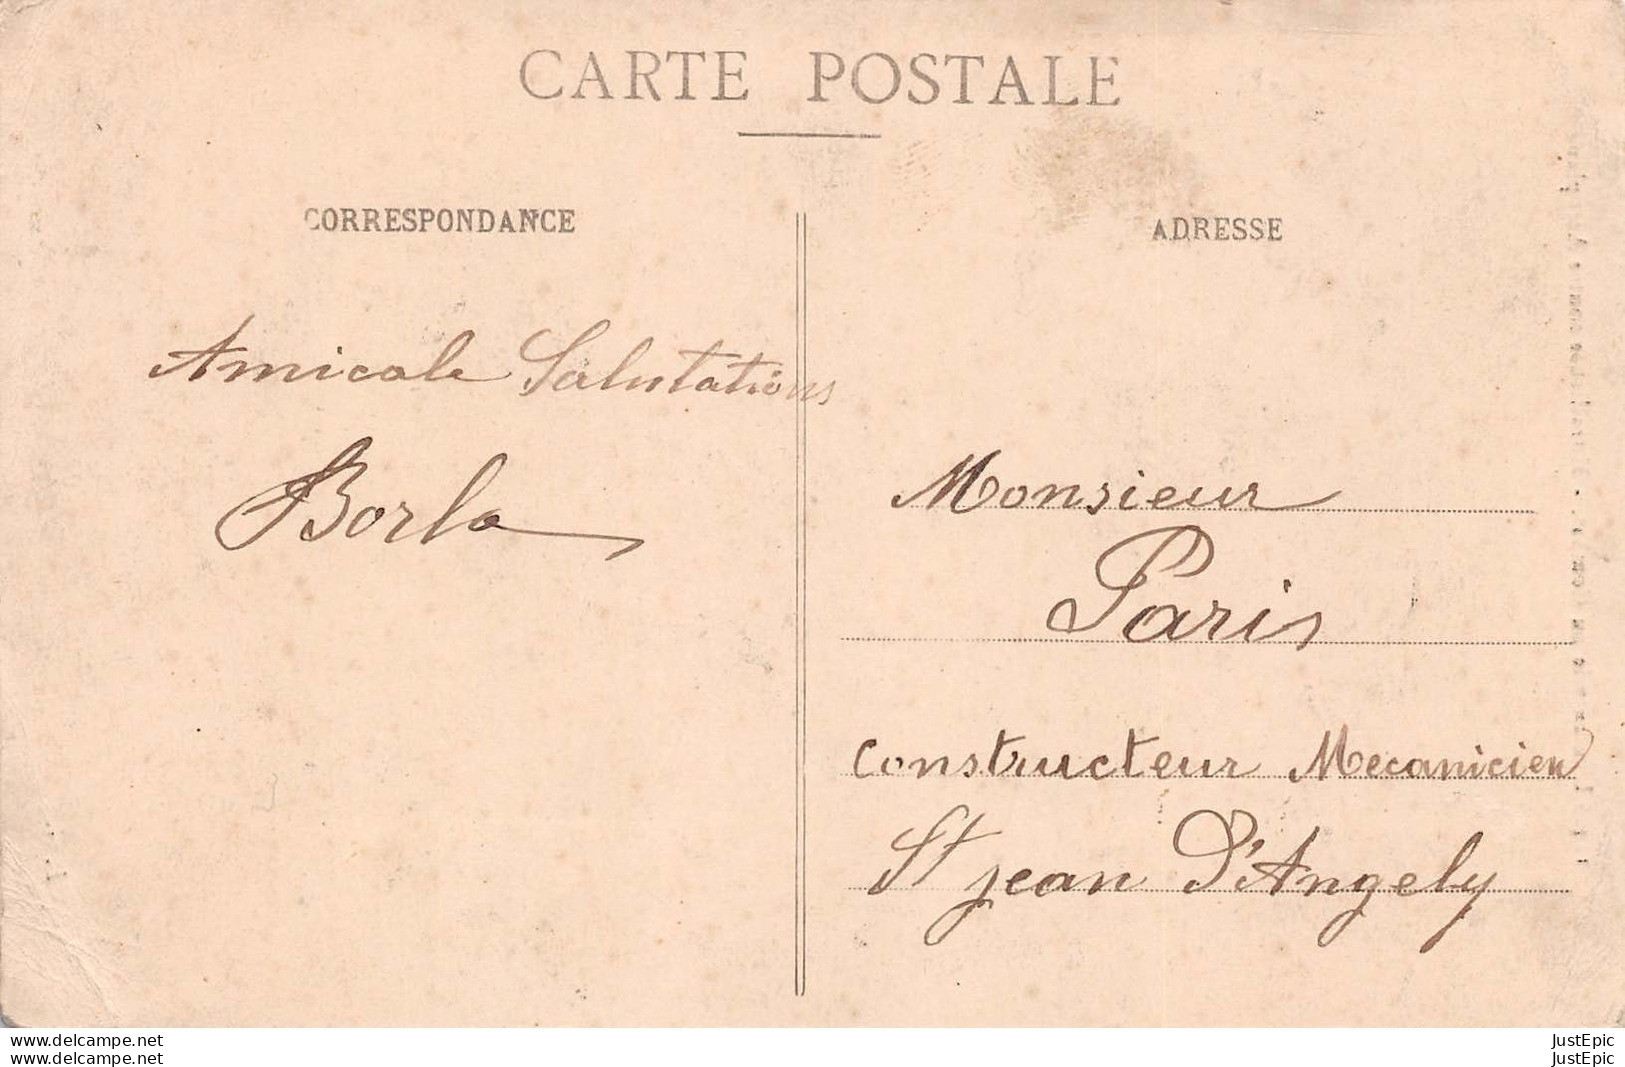 CARTE POSTALE
CORRESPONDANCE
Amicale Salutations
Borla
ADRESSE
Monsieur
Paris
Constructeur Mecanicien
St Jean D'Angely
www.delcampe.net
www.delcampe.net
JustEpic
JustEpic